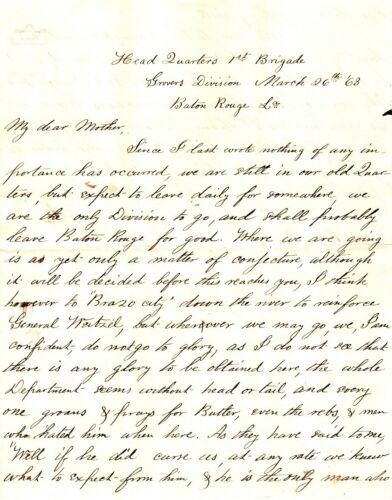 Head Quarters 1st Brigade
Grovers Division March 26th '63
Baton Rouge La
My dear Mother,
Since I last wrote nothing of any im-
portance has occurred, we are still in our old Quar-
ters, but expect to leave daily for somewhere, we
are the only Division to go, and shall probably
leave Baton Rouge for good. Where we are going
is as yet only a matter of conjecture, although
it will be decided before this reaches you, I think
however to 'Brazo city' down the river to reinforce
General Weitzil, but wherever we may go, we, I am
confident, do not go to glory, as I do not see that
there is any glory to be obtained here, the whole
Department seems without head or tail, and every
one groans & prays for Butler, even the rebs, & men
who hated him when here. As they have said to me,
"Well if he did curse us, at any rate we knew
what to expect from him, & he is the only man who